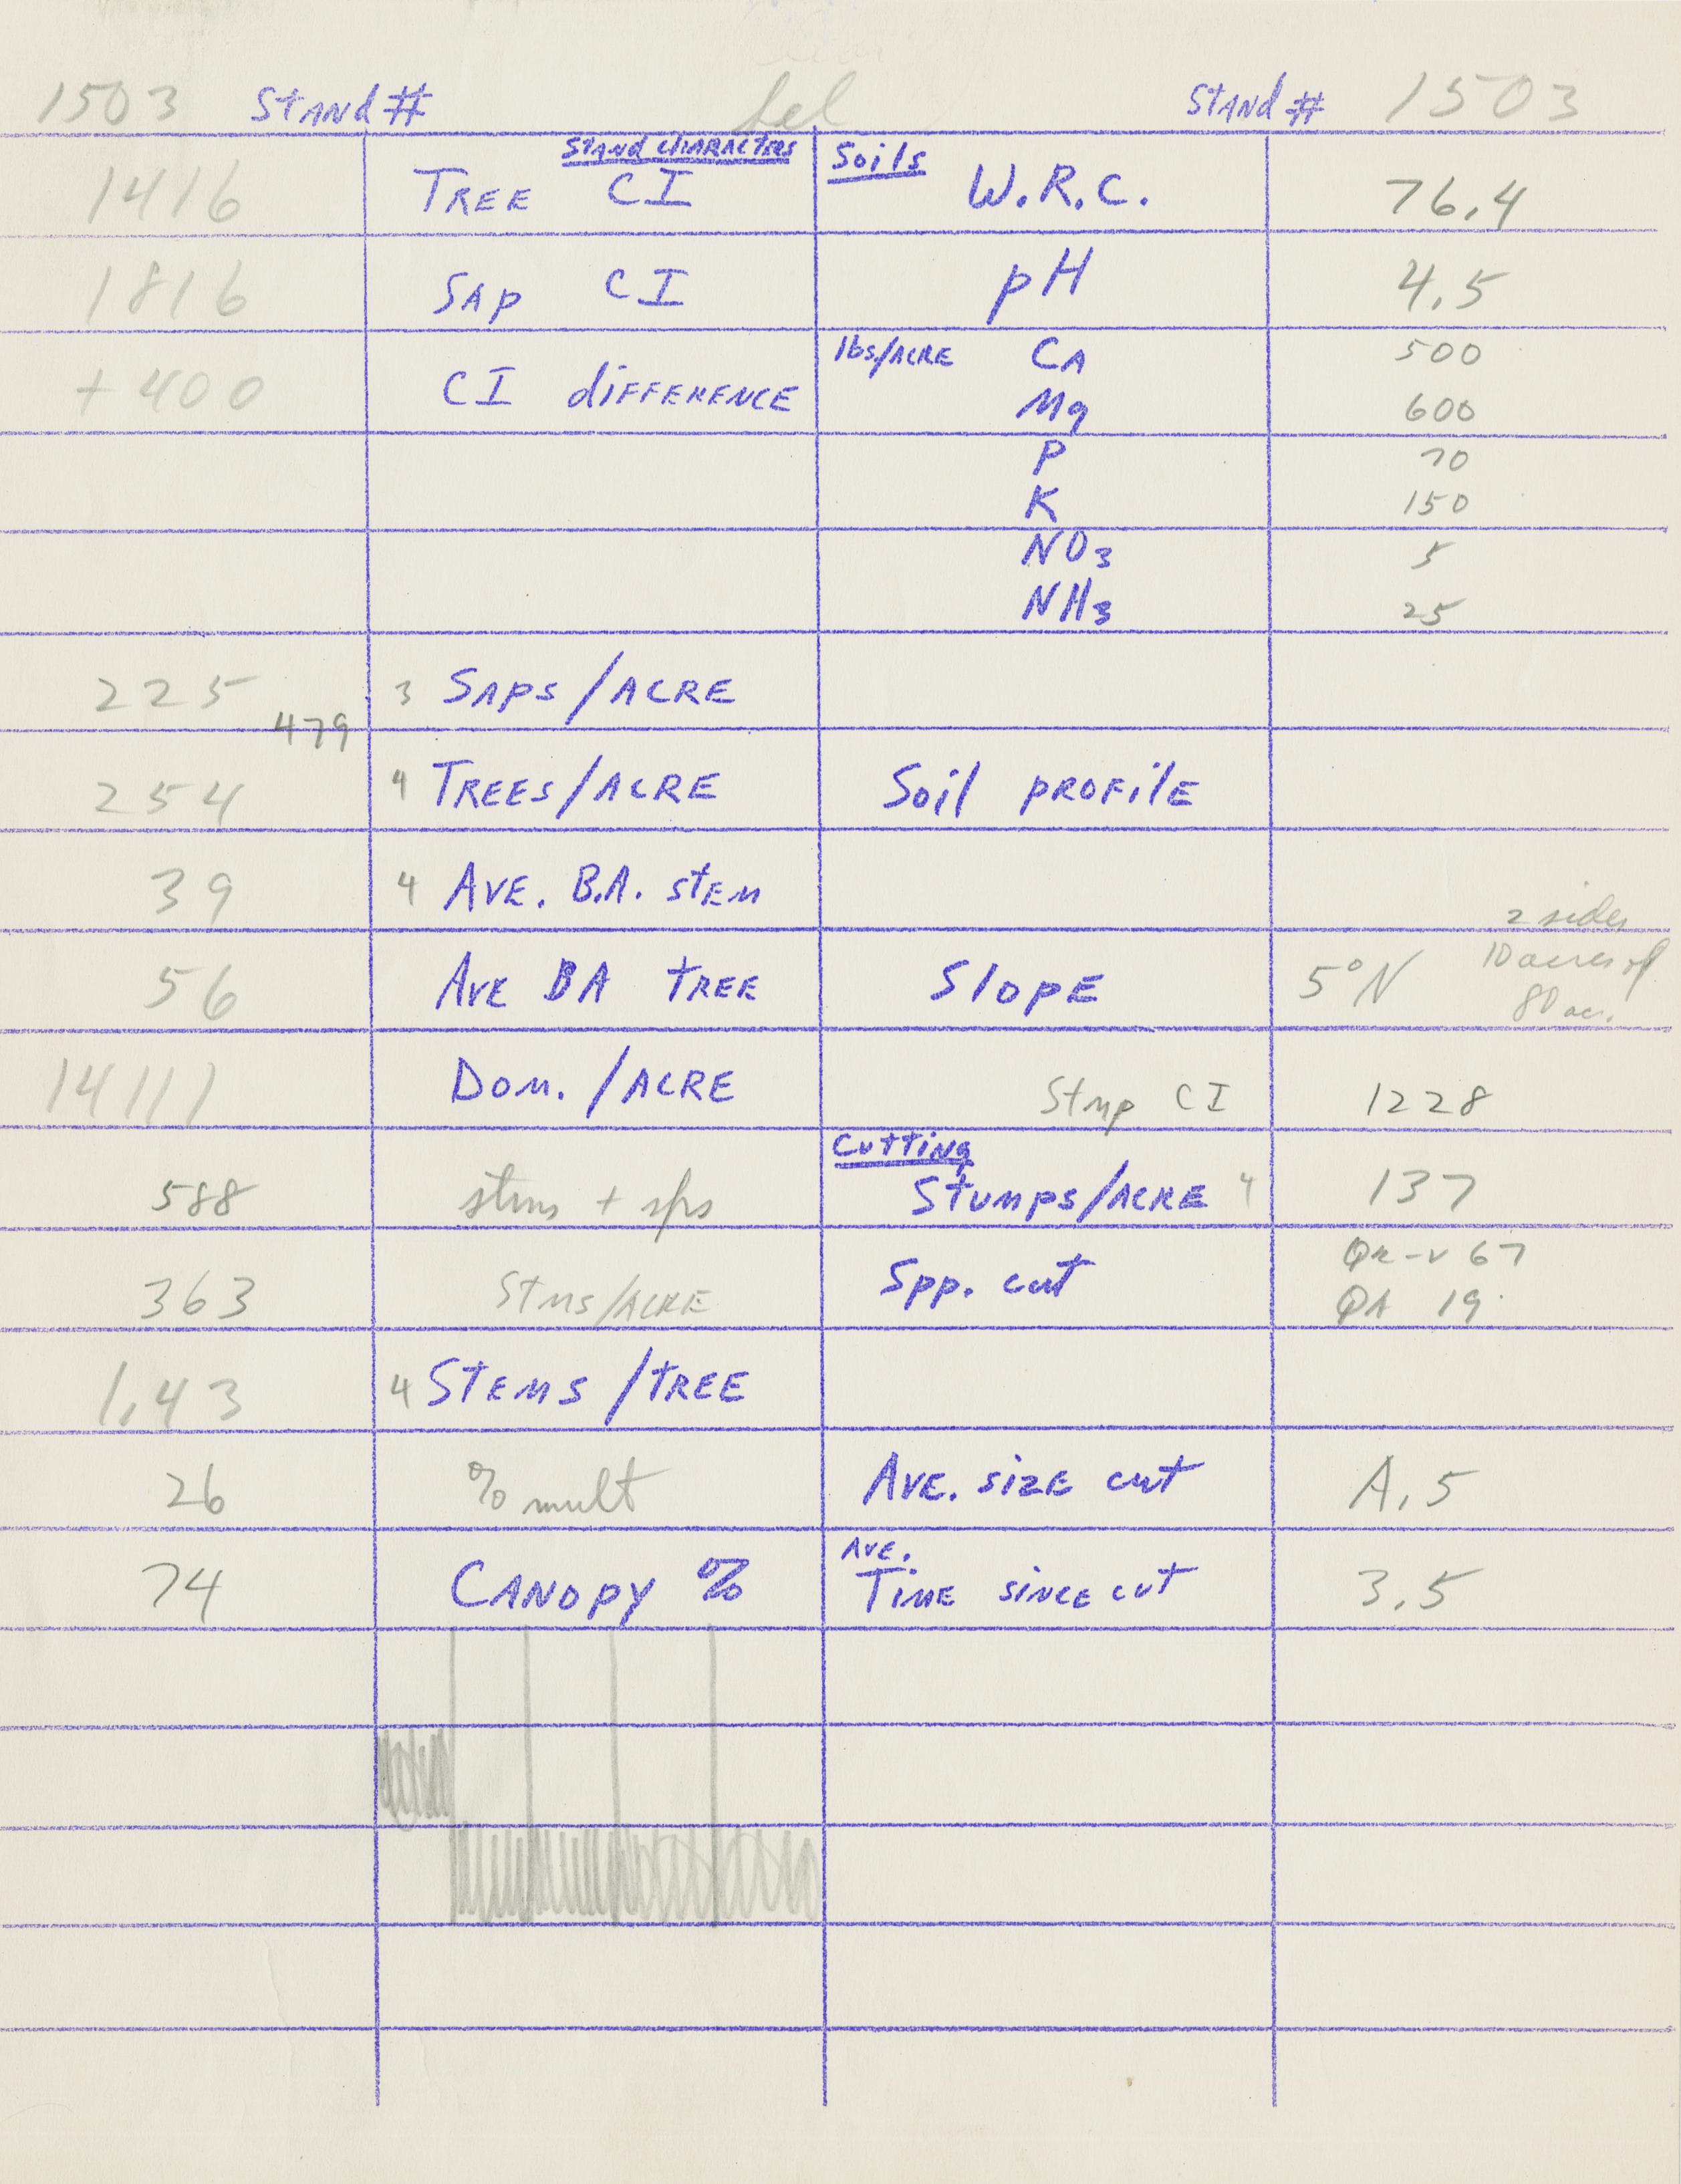 1503 Stand # Sel Stand # 1503
Stand Characters Soils
1416 Tree CI W.R.C. 76.4
1816 Sap CI pH 4.5
+400 CI difference lbs/Acre Ca 500
Mg 600
P 70
K 150
NO3 5
NH3 25
225 3 Saps/Acre
479
254 4 Trees/Acre Soil profile
39 4 Ave. B.A. stem
56 Ave BA tree Slope 5°N 2 sides
10 acres of
80 ac.
14111 Dom./Acre Stmp CI 1228
Cutting
588 stms + sps Stumps/Acre 4 137
363 Stms/Acre Spp. cut QR-V 67
QA 19
1.43 4 Stems/tree
26 % mult Ave. size cut A.5
74 Canopy % Ave. Time since cut 3.5